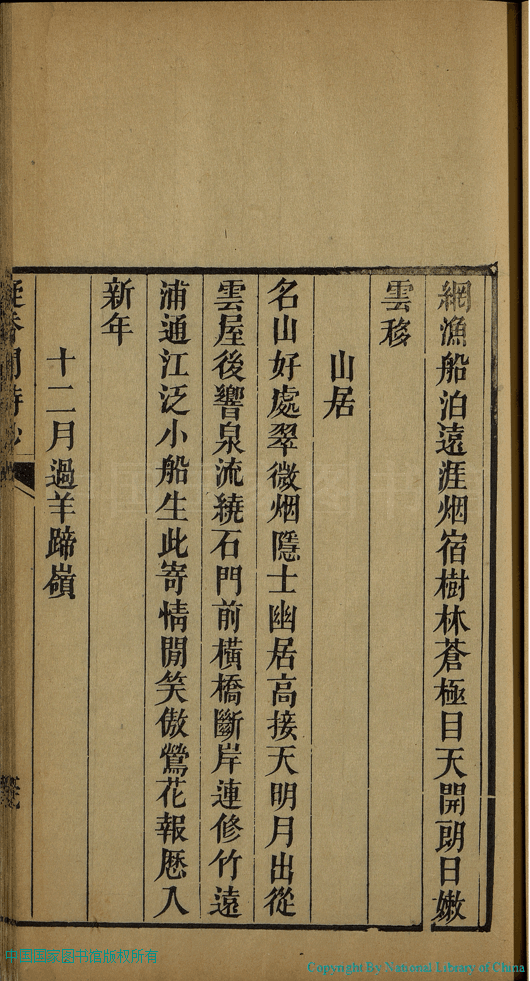 網漁船泊遠涯烟宿樹林蒼極目天開朗日嫩
雲移
山居
名山好處翠微烟隱士幽居高接天明月出從
雲屋後響泉流繞石門前橫橋斷岸連修竹遠
浦通江泛小船生此寄情閒笑傲鶯花報曆入
新年
十二月過羊蹄嶺
中国国家图书馆版权所有
Copyright By National Library of China